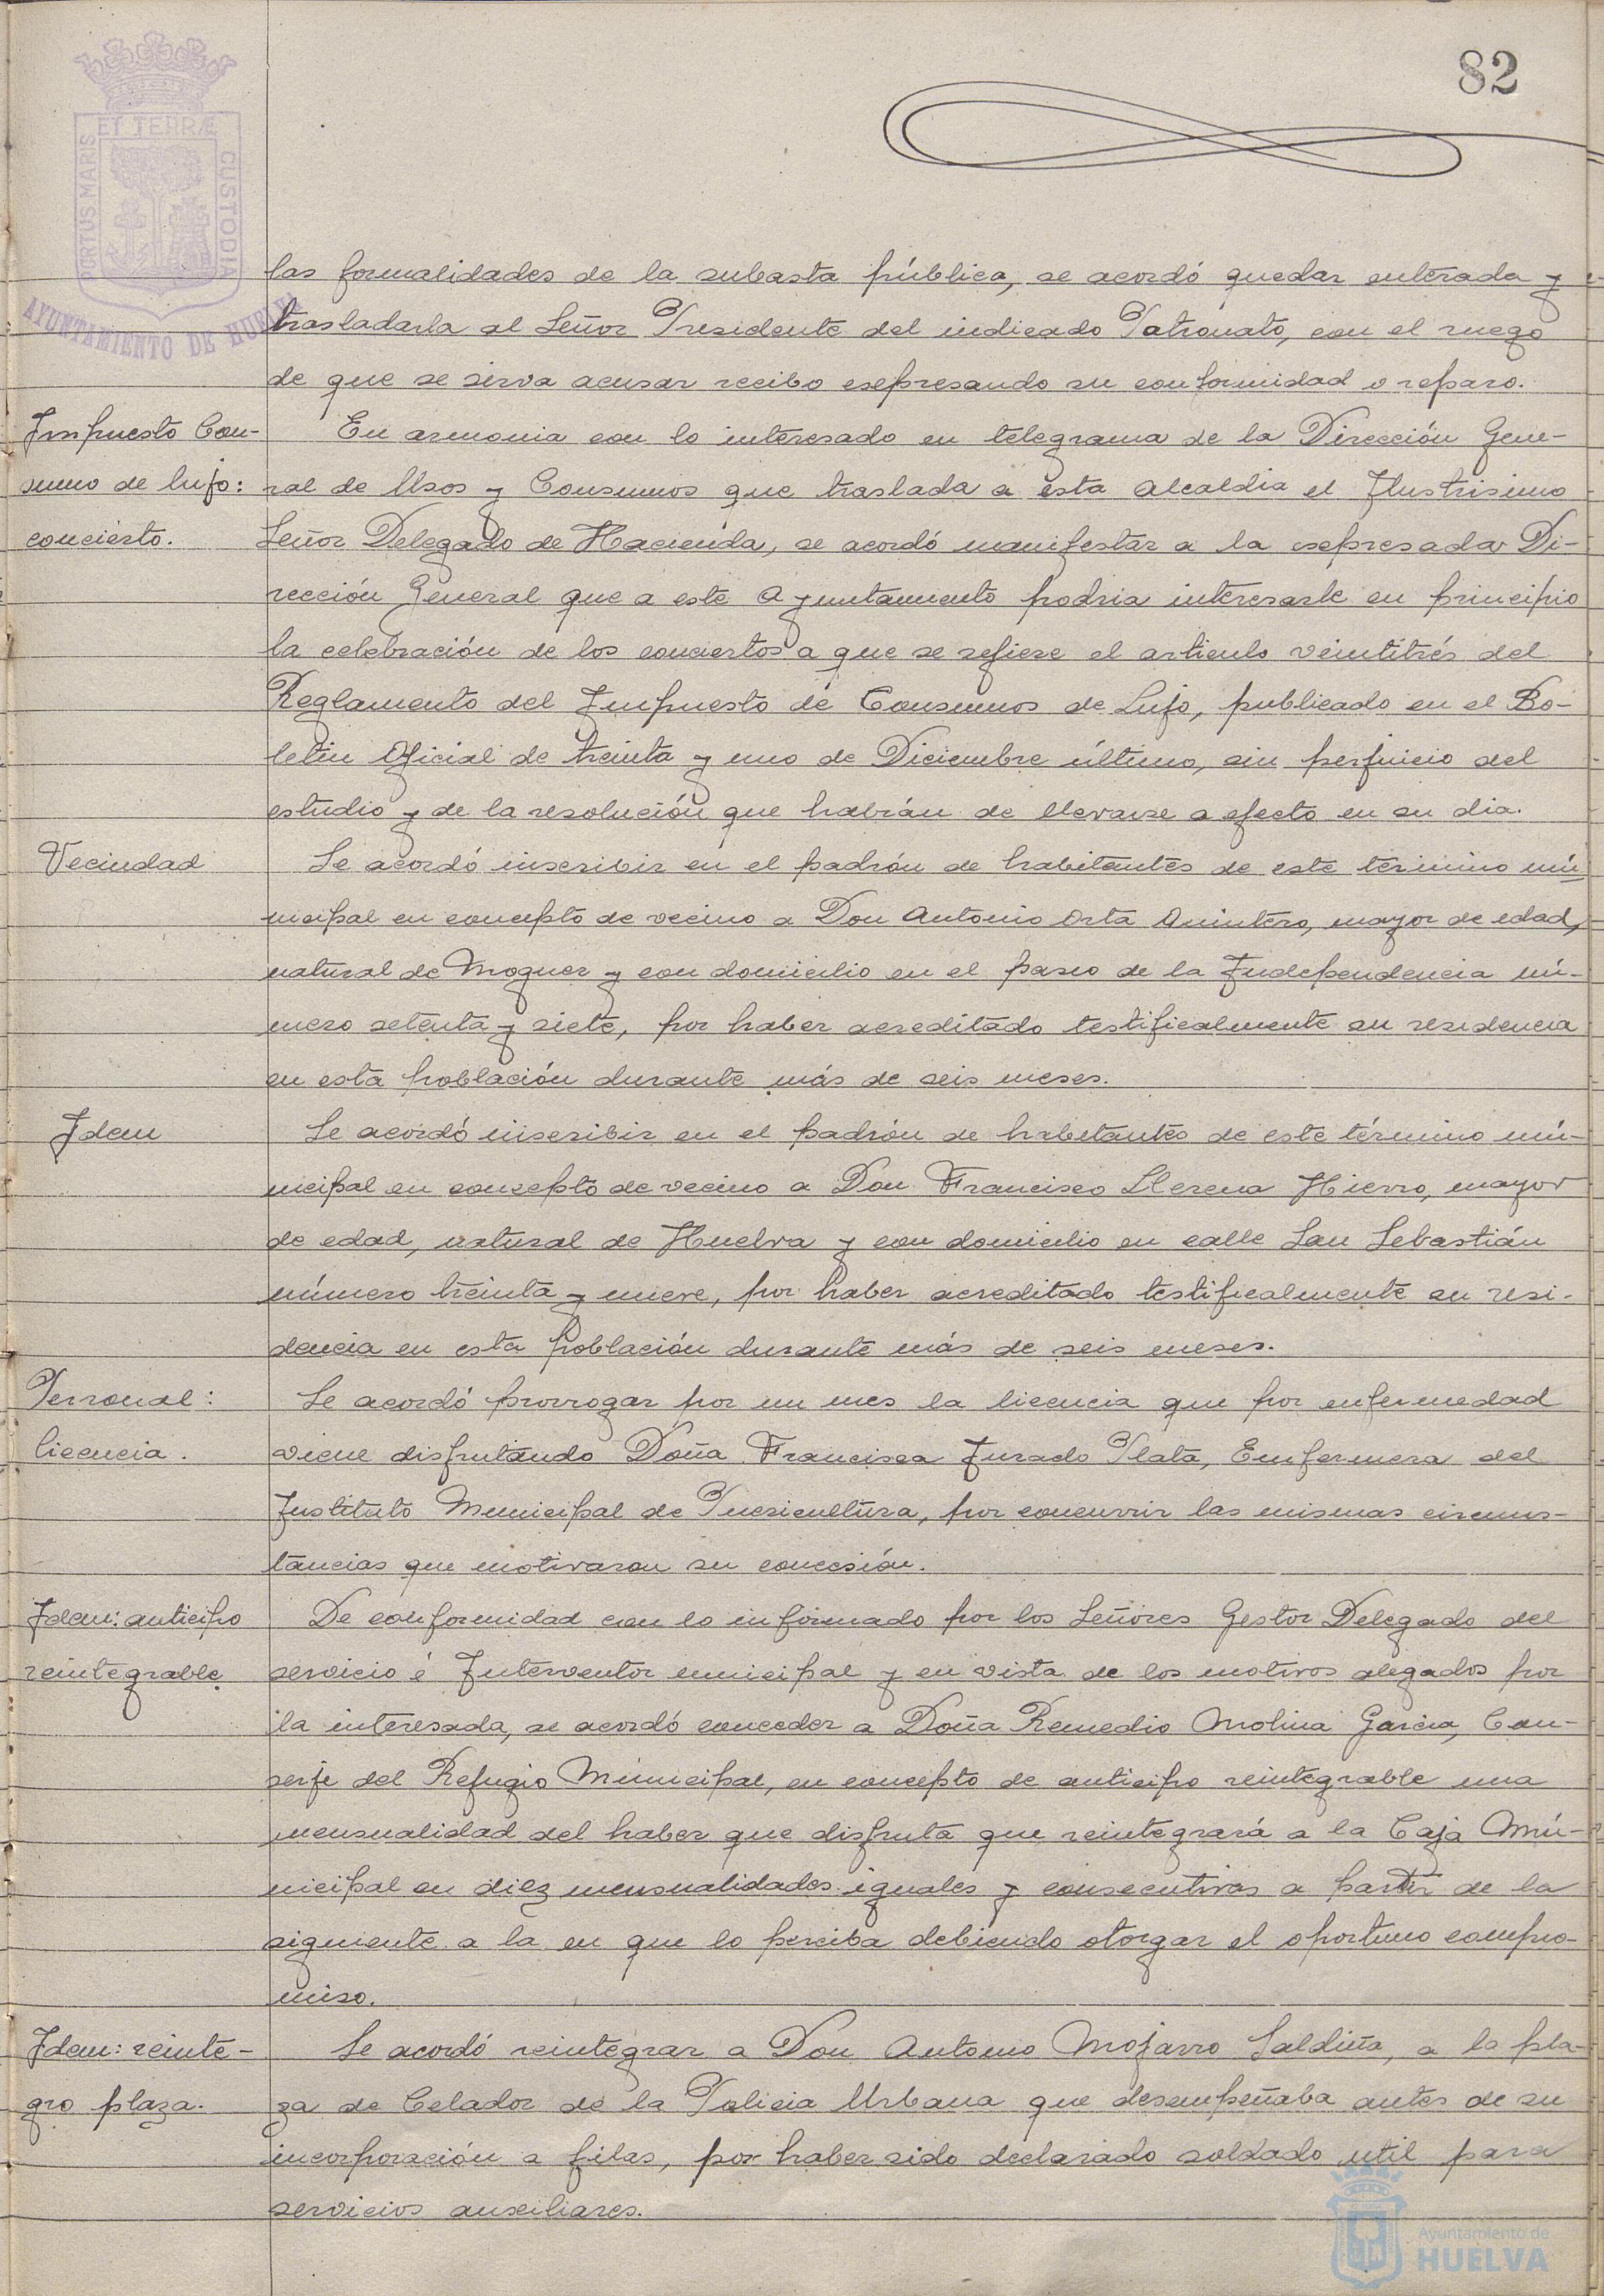 82
PORTUS MARIS
ET TERRÆ
CUSTODIA
AYUNTAMIENTO DE HUELVA
las formalidades de la subasta pública, se acordó quedar enterada y
trasladarla al Señor Presidente del indicado Patronato, con el ruego
de que se sirva acusar recibo espresando su conformidad o reparo.
Impuesto Con-
sumo de lujo:
concierto.
En armonia con lo interesado en telegrama de la Dirección Gene-
ral de Usos y Consumos que traslada a esta Alcaldia el Ilustrisimo
Señor Delegado de Hacienda, se acordó manifestar a la espresada Di-
rección General que a este Ayuntamiento podria interesarle en principio
la celebración de los conciertos a que se refiere el articulo veintitrés del
Reglamento del Impuesto de Consumos de Lujo, publicado en el Bo-
letin Oficial de treinta y uno de Diciembre último, sin perjuicio del
estudio y de la resolución que habrán de llevarse a efecto en su dia.
Vecindad
Se acordó inscribir en el padrón de habitantes de este término mu-
nicipal en concepto de vecino a Don Antonio Orta Quintero, mayor de edad,
natural de Moguer y con domicilio en el paseo de la Independencia nú-
mero setenta y siete, por haber acreditado testificalmente su residencia
en esta población durante más de seis meses.
Idem
Se acordó inscribir en el padrón de habitantes de este término mu-
nicipal en concepto de vecino a Don Francisco Llerena Hierro, mayor
de edad, natural de Huelva y con domicilio en calle San Sebastián
número treinta y nueve, por haber acreditado testificalmente su resi-
dencia en esta población durante más de seis meses.
Personal:
licencia.
Se acordó prorrogar por un mes la licencia que por enfermedad
viene disfrutando Doña Francisca Jurado Plata, Enfermera del
Instituto Municipal de Puericultura, por concurrir las mismas circuns-
tancias que motivaron su concesión.
Idem: anticipo
reintegrable
De conformidad con lo informado por los Señores Gestor Delegado del
servicio é Interventor municipal y en vista de los motivos alegados por
la interesada, se acordó conceder a Doña Remedio Molina Garcia, Con-
serje del Refugio Municipal, en concepto de anticipo reintegrable una
mensualidad del haber que disfruta que reintegrará a la Caja Mu-
nicipal en diez mensualidades iguales y consecutivas a partir de la
siguiente a la en que lo perciba debiendo otorgar el oportuno compro-
miso.
Idem: reinte-
gro plaza.
Se acordó reintegrar a Don Antonio Mojarro Saldiña, a la pla-
za de Celador de la Policia Urbana que desempeñaba antes de su
incorporación a filas, por haber sido declarado soldado util para
servicios auxiliares.
Ayuntamiento de
HUELVA